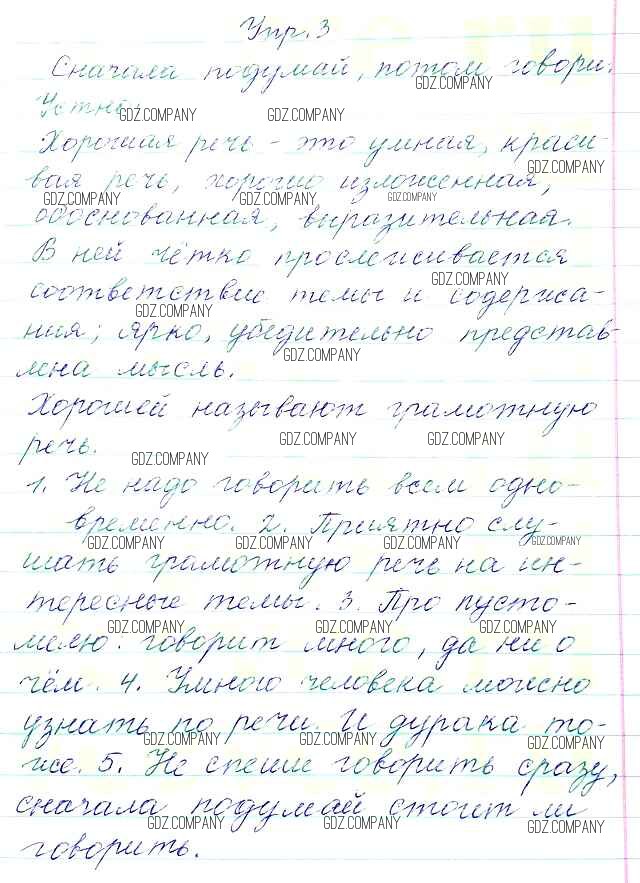 Упр. 3
Сначала подумай, потом говори.
GDZ.COMPANY
Устно.
GDZ.COMPANY GDZ.COMPANY
Хорошая речь - это умная, краси-
GDZ.COMPANY
вая речь, хорошо изложенная,
GDZ.COMPANY GDZ.COMPANY GDZ.COMPANY
обоснованная, выразительная.
В ней чётко прослеживается
GDZ.COMPANY
соответствие темы и содержа-
GDZ.COMPANY
ния; ярко, убедительно представ-
GDZ.COMPANY
лена мысль.
Хорошей называют грамотную
GDZ.COMPANY GDZ.COMPANY
речь.
GDZ.COMPANY
1. Не надо говорить всем одно-
временно. 2. Приятно слу-
GDZ.COMPANY GDZ.COMPANY GDZ.COMPANY GDZ.COMPANY
шать грамотную речь на ин-
тересные темы. 3. Про пусто-
GDZ.COMPANY GDZ.COMPANY GDZ.COMPANY
мелю. говорит много, да ни о
чём. 4. Умного человека можно
узнать по речи. И дурака то-
GDZ.COMPANY GDZ.COMPANY GDZ.COMPANY
же. 5. Не спеши говорить сразу,
сначала подумай стоит ли
GDZ.COMPANY GDZ.COMPANY GDZ.COMPANY
говорить.